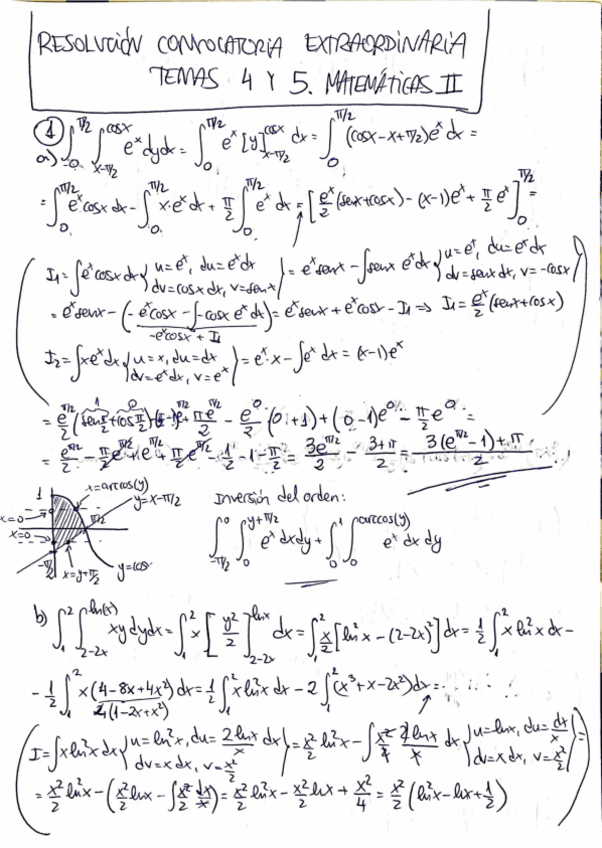 RESOLUCIÓN CONVOCATORIA EXTRAORDINARIA
TEMAS 4 Y 5. MATEMÁTICAS II
① a) ∫_0^{π/2} ∫_{x-π/2}^{cosx} e^x dy dx = ∫_0^{π/2} e^x [y]_{x-π/2}^{cosx} dx = ∫_0^{π/2} (cosx - x + π/2) e^x dx =
= ∫_0^{π/2} e^x cosx dx - ∫_0^{π/2} x·e^x dx + π/2 ∫_0^{π/2} e^x dx = [e^x/2 (senx + cosx) - (x-1)e^x + π/2 e^x]_0^{π/2} =
I₁ = ∫e^x cosx dx {u = e^x, du = e^x dx / dv = cosx dx, v = senx} = e^x senx - ∫senx e^x dx {u = e^x, du = e^x dx / dv = senx dx, v = -cosx}
= e^x senx - (-e^x cosx - ∫-cosx e^x dx) = e^x senx + e^x cosx - I₁ ⇒ I₁ = e^x/2 (senx + cosx)
-e^x cosx + I₁
I₂ = ∫x e^x dx {u = x, du = dx / dv = e^x dx, v = e^x} = e^x x - ∫e^x dx = (x-1)e^x
= e^{π/2}/2 (sen π/2 + cos π/2) - (π/2 - 1)e^{π/2} + π e^{π/2}/2 - e^0/2 (0+1) + (0-1)e^0 - π/2 e^0 =
= e^{π/2}/2 - π/2 e^{π/2} + e^{π/2} + π/2 e^{π/2} - 1/2 - 1 - π/2 = 3e^{π/2}/2 - 3+π/2 = 3(e^{π/2} - 1) + π/2
1
x = arccos(y)
y = x - π/2
x=0
π/2
x=0
-π/2
x = y + π/2
y = cos
Inversión del orden:
∫_{-π/2}^0 ∫_0^{y+π/2} e^x dx dy + ∫_0^1 ∫_0^{arccos(y)} e^x dx dy
b) ∫_1^2 ∫_{2-2x}^{ln(x)} xy dy dx = ∫_1^2 x [y²/2]_{2-2x}^{lnx} dx = ∫_1^2 x/2 [ln²x - (2-2x)²] dx = 1/2 ∫_1^2 x ln²x dx -
- 1/2 ∫_1^2 x(4 - 8x + 4x²) dx = 1/2 ∫_1^2 x ln²x dx - 2 ∫_1^2 (x³ + x - 2x²) dx =
4(1 - 2x + x²)
I = ∫x ln²x dx {u = ln²x, du = 2lnx/x dx / dv = x dx, v = x²/2} = x²/2 ln²x - ∫ x²/2 2lnx/x dx {u = lnx, du = dx/x / dv = x dx, v = x²/2} =
= x²/2 ln²x - (x²/2 lnx - ∫ x²/2 dx/x) = x²/2 ln²x - x²/2 lnx + x²/4 = x²/2 (ln²x - lnx + 1/2)